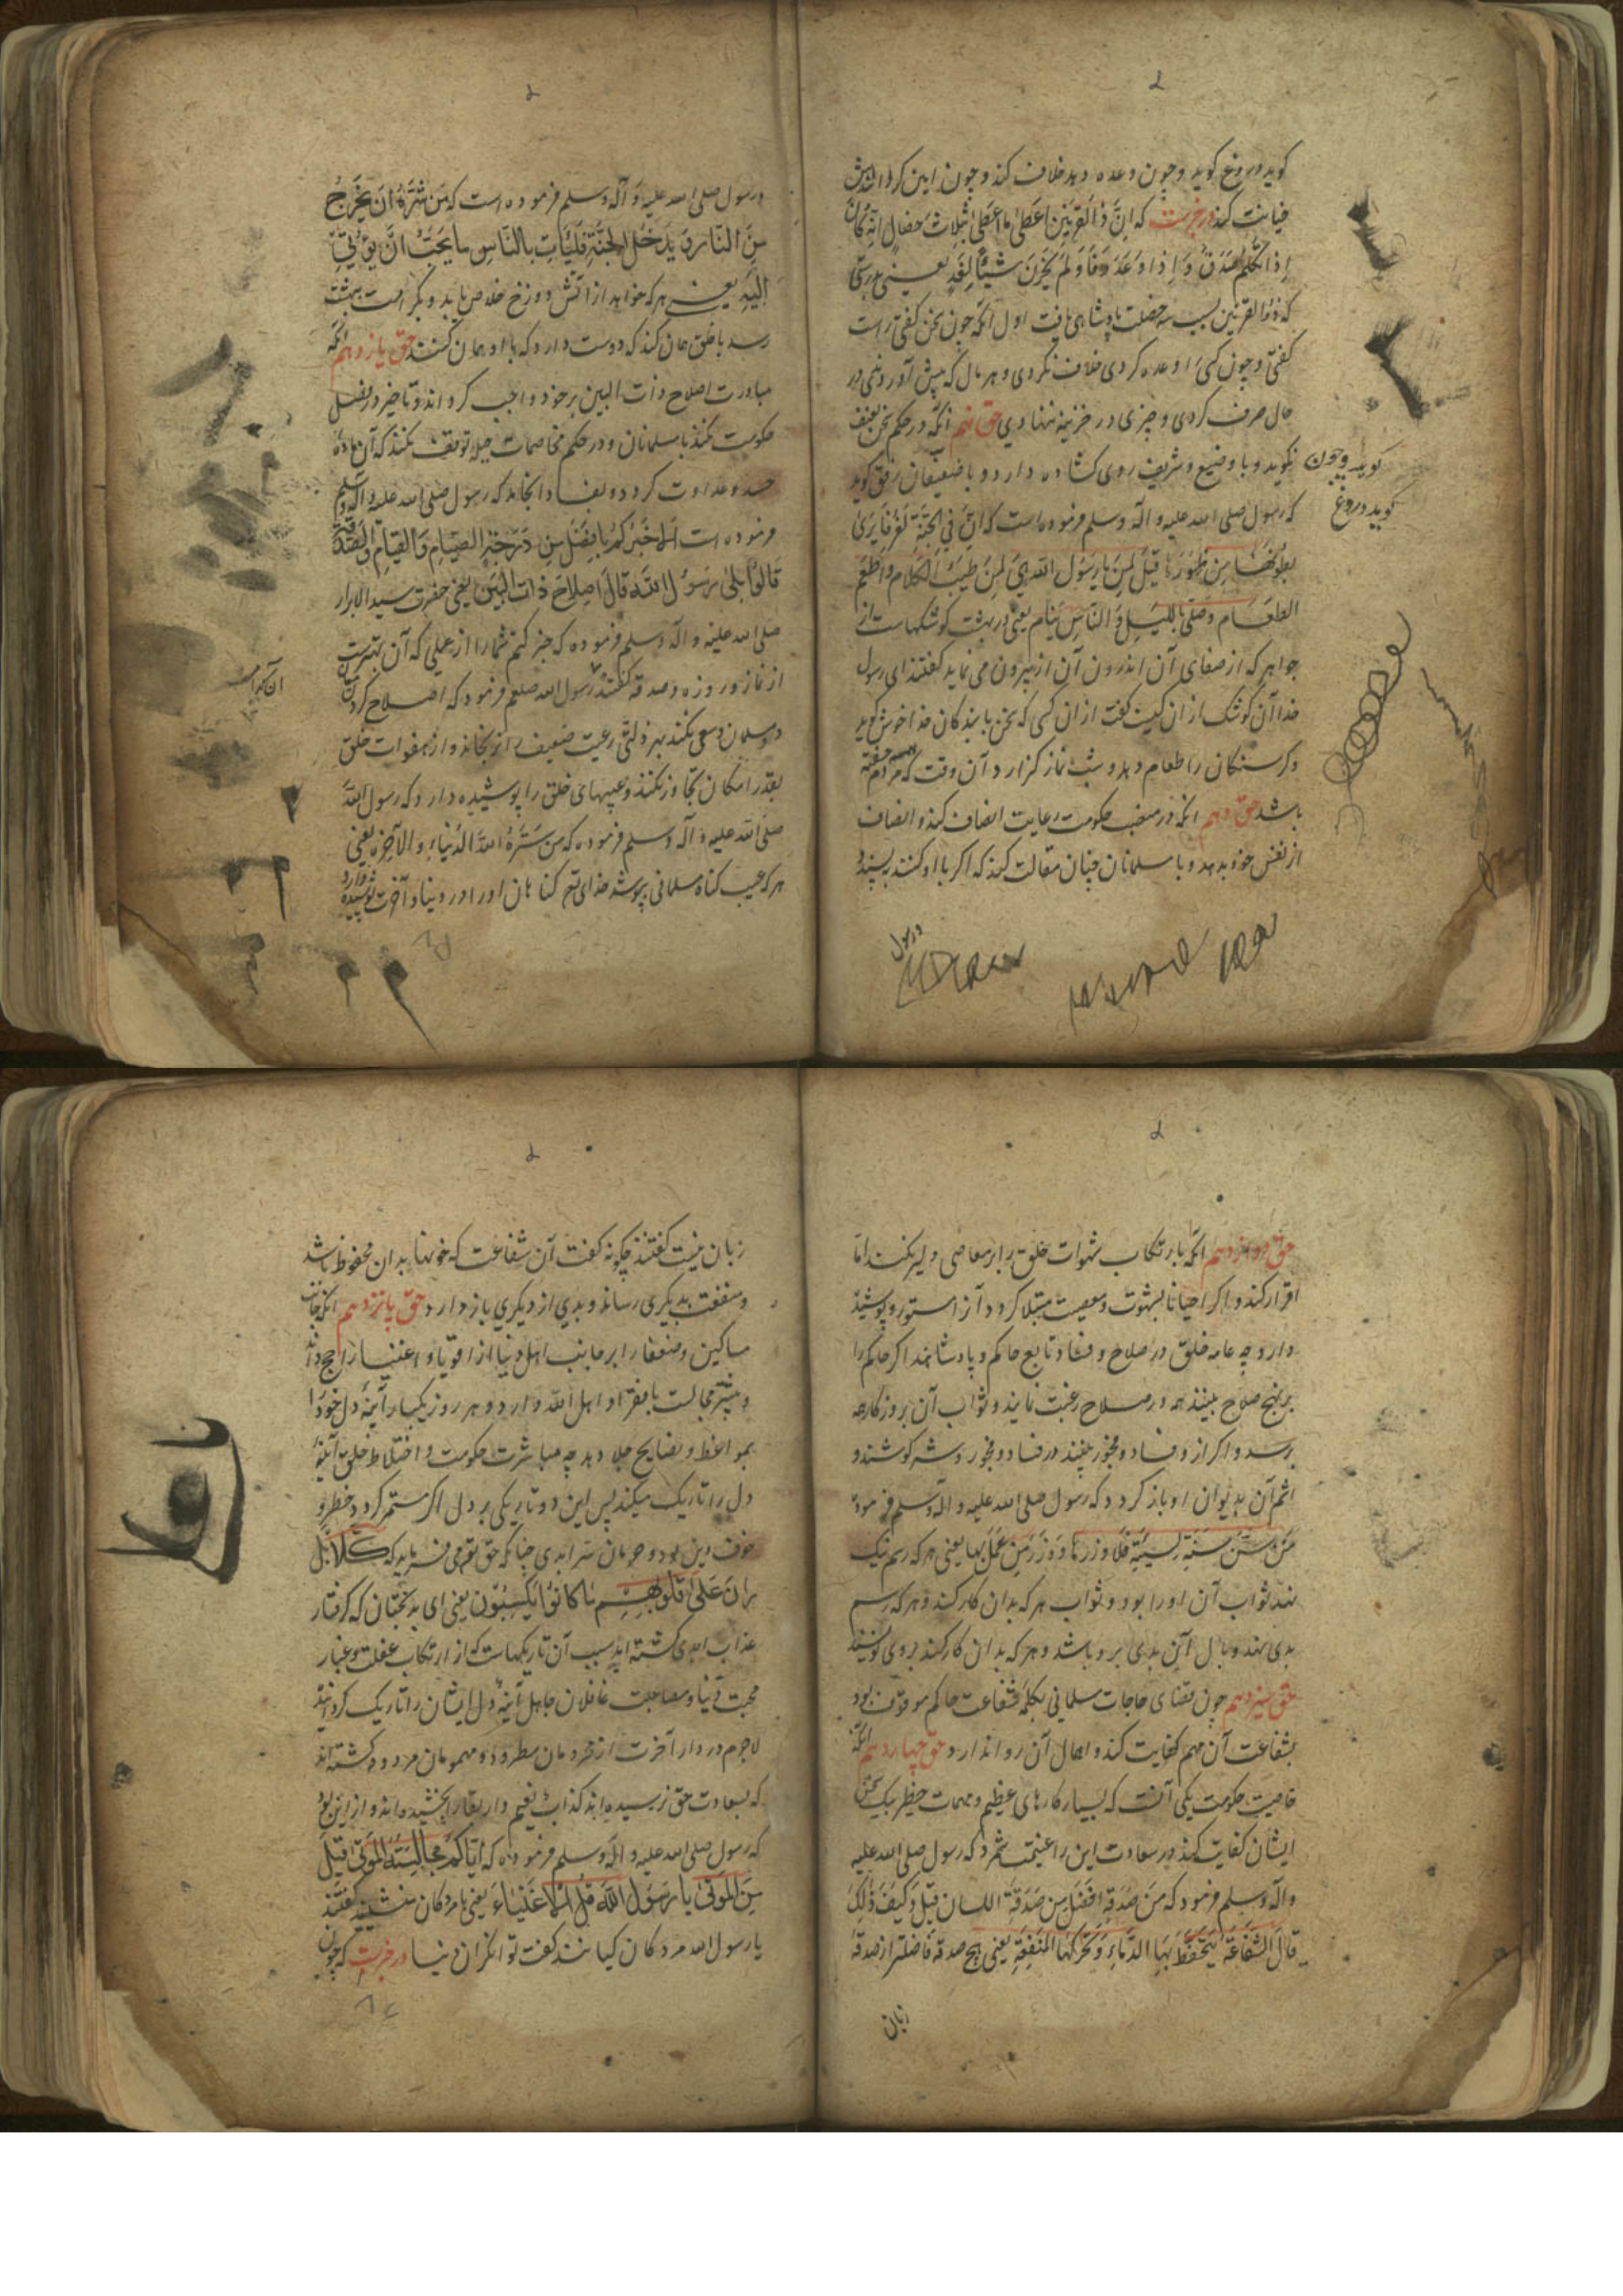 کوید دروغ کوید و چون وعده دهد خلاف کند و چون امین کردانندش
خیانت کند در خبرست که اِنَّ ذَا القَرنَین اَعطَیٰ ما اَعطَیٰ بثلاث خصال اِنّه کانَ
اِذا تکلّم صَدَقَ وَ اِذا وَعَدَ وَفَا وَ لَم یَخزُن شَیئاً لِغَدٍ یعنی بدرستی
که ذوالقرنین بسبب سه خصلت پادشاهی یافت اول انکه چون سخن کفتی راست
کفتی و چون کسی را وعده کردی خلاف نکردی و هر مال که پیش آوردندی در
حال صرف کردی و چیزی در خزینه ننهادی حق نهم انکه در حکم سخن بعنف
نکوید و با وضیع و شریف روی کشاده دارد و با ضعیفان رفق کوید
که رسول صلی الله علیه و آله وسلم فرموده است که انَّ فی الجَنّةِ لَغُرَفاً یُریٰ
بطونُها مِن ظهورها قیلَ لِمَن یا رسول الله هیَ لِمَن طَیّبَ الکلام و اَطعَمَ
الطعام وَ صَلّی باللیلِ وَ النّاس نیام یعنی در بهشت کوشکهاست از
جواهر که از صفای آن اندرون آن از بیرون می نماید کفتند ای رسول
خدا آن کوشک از ان کیست کفت از ان کسی که سخن با بندکان خدا خوش کوید
و کرسنکان را طعام دهد و شب نماز کزارد آن وقت که مردم خفته
باشند حق دهم انکه در منصب حکومت رعایت انصاف کند و انصاف
از نفس خود بدهد و با مسلمانان چنان مقالت کند که اکر با او کنند بپسندد
ورسول
کوید و چون
کوید دروغ
ورسول صلی الله علیه و آله وسلم فرموده است که مَن سَرَّهُ ان یَخرجُ
مِنَ النّار و یَدخُل الجنَّةِ فلیَأتِ بالنّاسِ ما یحِبُّ انَّ یؤتی
الَیهِ یعنی هر که خواهد از اتش دوزخ خلاص یابد و بکرامت بهشت
رسد با خلق همان کند که دوست دارد که با او همان کنند حق یازدهم انکه
مبادرت اصلاح ذات البین بر خود واجب کرداند و تاخیر در فصل
حکومت نکند با مسلمانان و در حکم مخاصمات حیله توقف نکند که آن ماده
حسد و عداوت کردد و بفساد انجامد که رسول صلی الله علیه و آله وسلم
فرموده است الا اُخبرُکم بافضَل مِن دَرَجةِ الصیامِ وَ القیامِ و الصَدَقة
قالوُا بلیٰ یرسول اللهَ قالَ اصلاحُ ذات البَین یعنی حضرت سید الابرار
صلی الله علیه و آله وسلم فرموده که خبر کنم شما را از عملی که آن بهترست
از نماز و روزه و صدقه کفتند رسول الله صلعم فرمود که اصلاح کردن میان
دو مسلمان و سعی نکند بهر ذلتی رعیت ضعیف را نرنجاند و از هفوات خلق
بقدر امکان تجاوز نکند و عیبهای خلق را پوشیده دارد که رسول الله
صلی الله علیه و آله وسلم فرموده که مَن سَتَرَهُ اللهَ الدُّنیاء والآخِره یعنی
هر که عیب کناه مسلمانی بپوشد خدای تع کناهان او را در دنیا و آخرت پوشیده دارد
حق دوازدهم انکه بارتکاب شهوات خلق را بر معاصی دلیر نکند اما
اقرار کند و اکر احیانا بشهوت و معصیت مبتلا کردد آنرا مستور و پوشیده
دارد چه عامه خلق در صلاح و فساد تابع حاکم و پادشاهند اکر حاکم را
بر نهج صلاح بینند همه در صلاح رغبت نمایند و ثواب آن بروزکار همه
برسد و اکر از و فساد و فجور بینند در فساد و فجور و شر کوشند و
اثم آن بدیوان او باز کردد که رسول صلی الله علیه و آله وسلم فرموده
مَن سَنَّ سُنَّةَ لسَیئةِ فلَهُ وزرها وَ وَزرُ مَن عَمَلَ بها یعنی هر که رسم نیک
نهد ثواب آن او را بود و ثواب هر که بدان کار کند و هر که رسم
بدی نهد وبال آن بدی برو باشد و هر که بدان کار کند بر وی نویسند
حق سیزدهم چون قضای حاجات مسلمانی بکلمه شفاعت حاکم موقوف بود
بشفاعت آن مهم کفایت کند و اهمال آن روا ندارد حق چهاردهم انکه
خاصیت حکومت یکی آنست که بسیار کارهای عظیم و مهمات خطیر بیک سخن
ایشان کفایت کند در سعادت این را غنیمت شمرد که رسول صلی الله علیه
وآله وسلم فرمود که مِن صَدَقةٍ افضَلِ مِن صَدَقةِ اللسان قیل وَ کیفَ ذلِکَ
قال الشّفاعَةَ یُحفَظ بَها الدّماءِ وَ تَحرّکها المنَفِعَةِ یعنی هیچ صدقه فاضلتر از صدقه
زبان
زبان نیست کفتند چکونه کفت آن شفاعت که خونها بدان محفوظ باشد
و منفعت بدیکری رساند و بدی از دیکری باز دارد حق پانزدهم انکه جانب
مساکین و ضعفا را بر جانب اهل دنیا از اقویا و اغنیا راجح داند
و بیشتر مجالست با فقرا و اهل الله دارد و هر روز یکبار آینه دل خود را
بمواعظ و نصایح جلا دهد چه مباشرت حکومت و اختلاط خلق آینه
دل را تاریک میکند پس این دو تاریکی بر دل اکر مستمر کردد خطر و
خوف دین بود و حرمان سر ابدی چنانکه حق تع می فرماید که کَلّا بَل
رانَ عَلیٰ قلوبِهِم ما کانوُا یَکسِبُون یعنی ای بدبختان که کرفتار
عذاب ابدی کشته اید سبب آن تاریکهاست که از ارتکاب غفلت و غبار
محبت دنیا و مصاحبت غافلان جاهل آینه دل ایشان را تاریک کردانیده
لاجرم در دار آخرت از محرومان مطرود و مهمومان مردود کشته اند
که بسعادت حق نرسیده اند کذاب نعیم دار بقا را بخشیده اند و ازین بود
که رسول صلی الله علیه و آله وسلم فرموده که ایّاکُم مجالِسَةَ المَوتیٰ قیلَ
مِنَ المَوتیٰ یا رسَوُل الله قُل الاَغنیاء یعنی با مردکان منشینید کفتند
یا رسول الله مردکان کیانند کفت توانکران دنیا در خبرست که چون